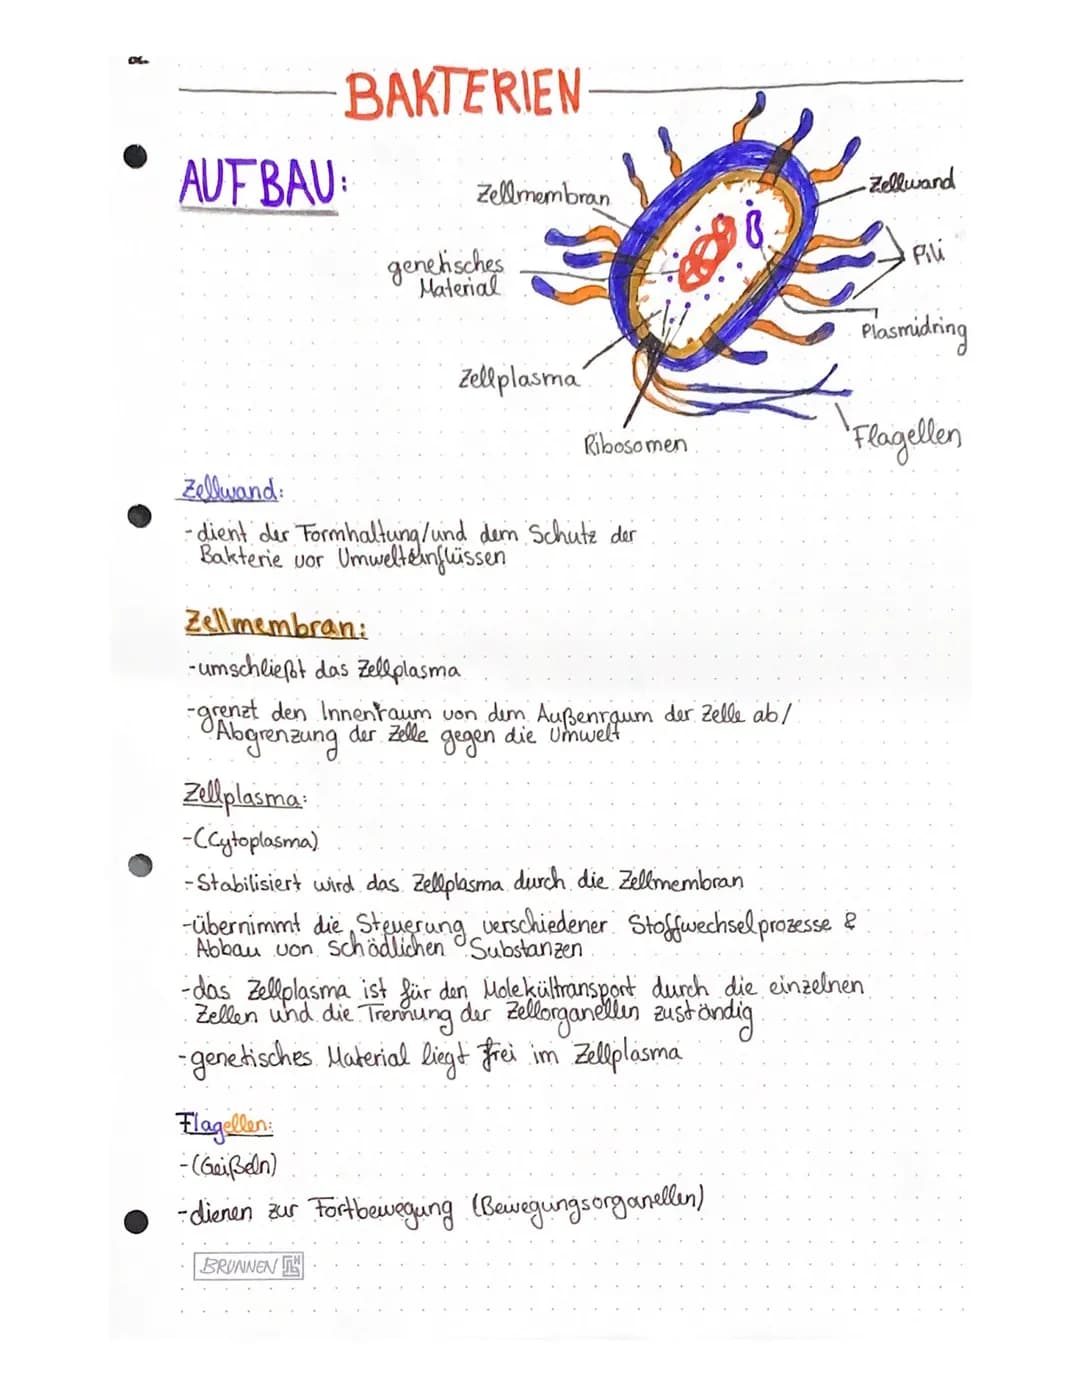 BAKTERIEN
AUFBAU:
Zellmembran
Zellwand
genetisches
Material
Pili
Plasmidring
Zellplasma
Ribosomen
Flagellen
Zellwand:
-dient der Formhaltung/und dem Schutz der
Bakterie vor Umwelteinflüssen
Zellmembran:
-umschließt das Zellplasma
-grenzt den Innenraum von dem Außenraum der Zelle ab/
Abgrenzung der Zelle gegen die Umwelt
Zellplasma:
-(Cytoplasma)
-Stabilisiert wird das Zellplasma durch die Zellmembran
-übernimmt die Steuerung verschiedener Stoffwechselprozesse &
Abbau von schädlichen Substanzen
-das Zellplasma ist für den Molekültransport durch die einzelnen
Zellen und die Trennung der Zellorganellen zuständig
-genetisches Material liegt frei im Zellplasma
Flagellen:
-(Geißeln)
-dienen zur Fortbewegung (Bewegungsorganellen)
BRUNNEN